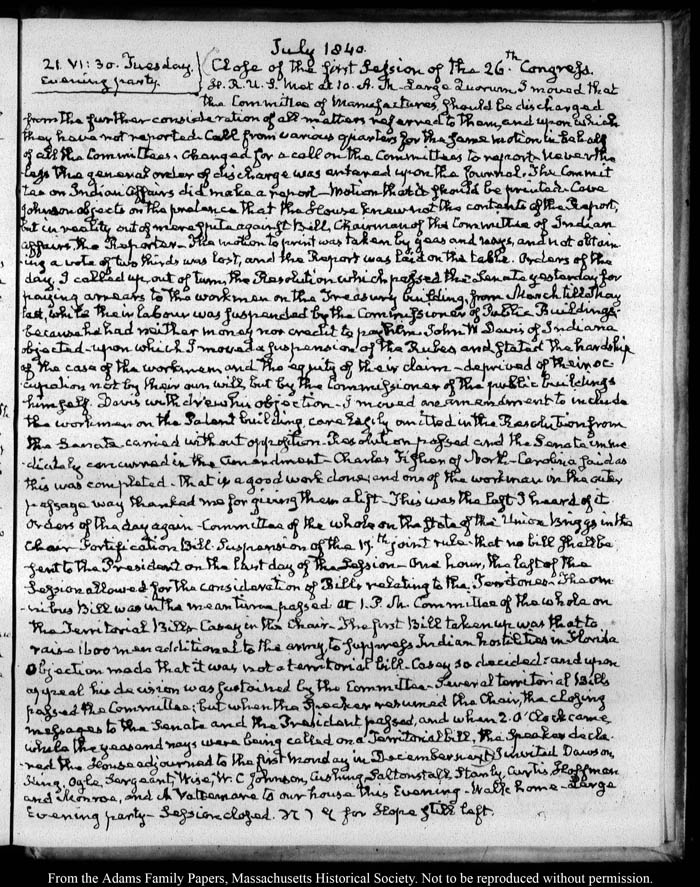 July 1840.
21. VI: 30. Tuesday. Close of the first Session of the 26th Congress.
Evening party. H. R. U. S. Met at 10. A. M. Large Quorum. I moved that
the Committee of Manufactures, should be discharged
from the further consideration of all matters referred to them, and upon which
they have not reported. Call from various quarters for the same motion in behalf
of all the Committees. Changed for a call on the Committees to report. Neverthe
less the general order of discharge was entered upon the Journal. The Commit
tee on Indian Affairs did make a report. Motion that it should be printed. Cave
Johnson objects on the pretence that the House knew not the contents of the Report,
but in reality out of mere spite against Bell, Chairman of the Committee of Indian
affairs, the Reporter. The motion to print was taken by yeas and nays, and not obtain
ing a vote of two thirds was lost, and the Report was laid on the table. Orders of the
day. I called up, out of turn, the Resolution which passed the Senate yesterday for
paying arrears to the workmen on the Treasury building, from March till May
last, while their labour was suspended by the Commissioner of Public Buildings
because he had neither money nor credit to pay them. John W Davis of Indiana
objected upon which I moved a suspension of the Rules and stated the hardship
of the case of the workmen and the equity of their claim - deprived of their oc
cupation not by their own will, but by the Commissioner of the public buildings
himself. Davis withdrew his objection - I moved an amendment to include
the workmen on the Patent building, carelessly omitted in the Resolution from
the Senate carried without opposition. Resolution passed and the Senate imme
diately concurred in the Amendment - Charles Fisher of North-Carolina said as
this was completed - that is a good work done; and one of the workmen in the outer
passage way thanked me for giving them a lift - This was the last I heard of it
Orders of the day again - Committee of the whole on the State of the Union Briggs in the
Chair. Fortification Bill. Suspension of the 17th joint rule - that no bill shall be
sent to the President on the last day of the Session - One hour, the last of the
Session allowed for the consideration of Bills relating to the Territories - The om
nibus Bill was in the mean time passed at 1. P. M. Committee of the whole on
the Territorial Bills - Casey in the Chair - The first Bill taken up was that to
raise 1600 men additional to the army, to suppress Indian hostilities in Florida
Objection made that it was not a territorial bill - Casey so decided: and upon
appeal his decision was sustained by the Committee - Several territorial Bills
passed the Committee; but when the Speaker resumed the Chair, the closing
messages to the Senate and the President passed, and when 2. O'Clock came
while the yeas and nays were being called on a Territorial bill, the Speaker decla
red the House adjourned to the first Monday in December next. I invited Dawson,
King, Ogle, Sergeant, Wise, W. C Johnson, Cushing, Saltonstall, Stanly, Curtis, Hoffman
and Monroe, and M Vattemare to our house this Evening - Walk home - Large
Evening party - Session closed. for Hope still left.
From the Adams Family Papers, Massachusetts Historical Society. Not to be reproduced without permission.